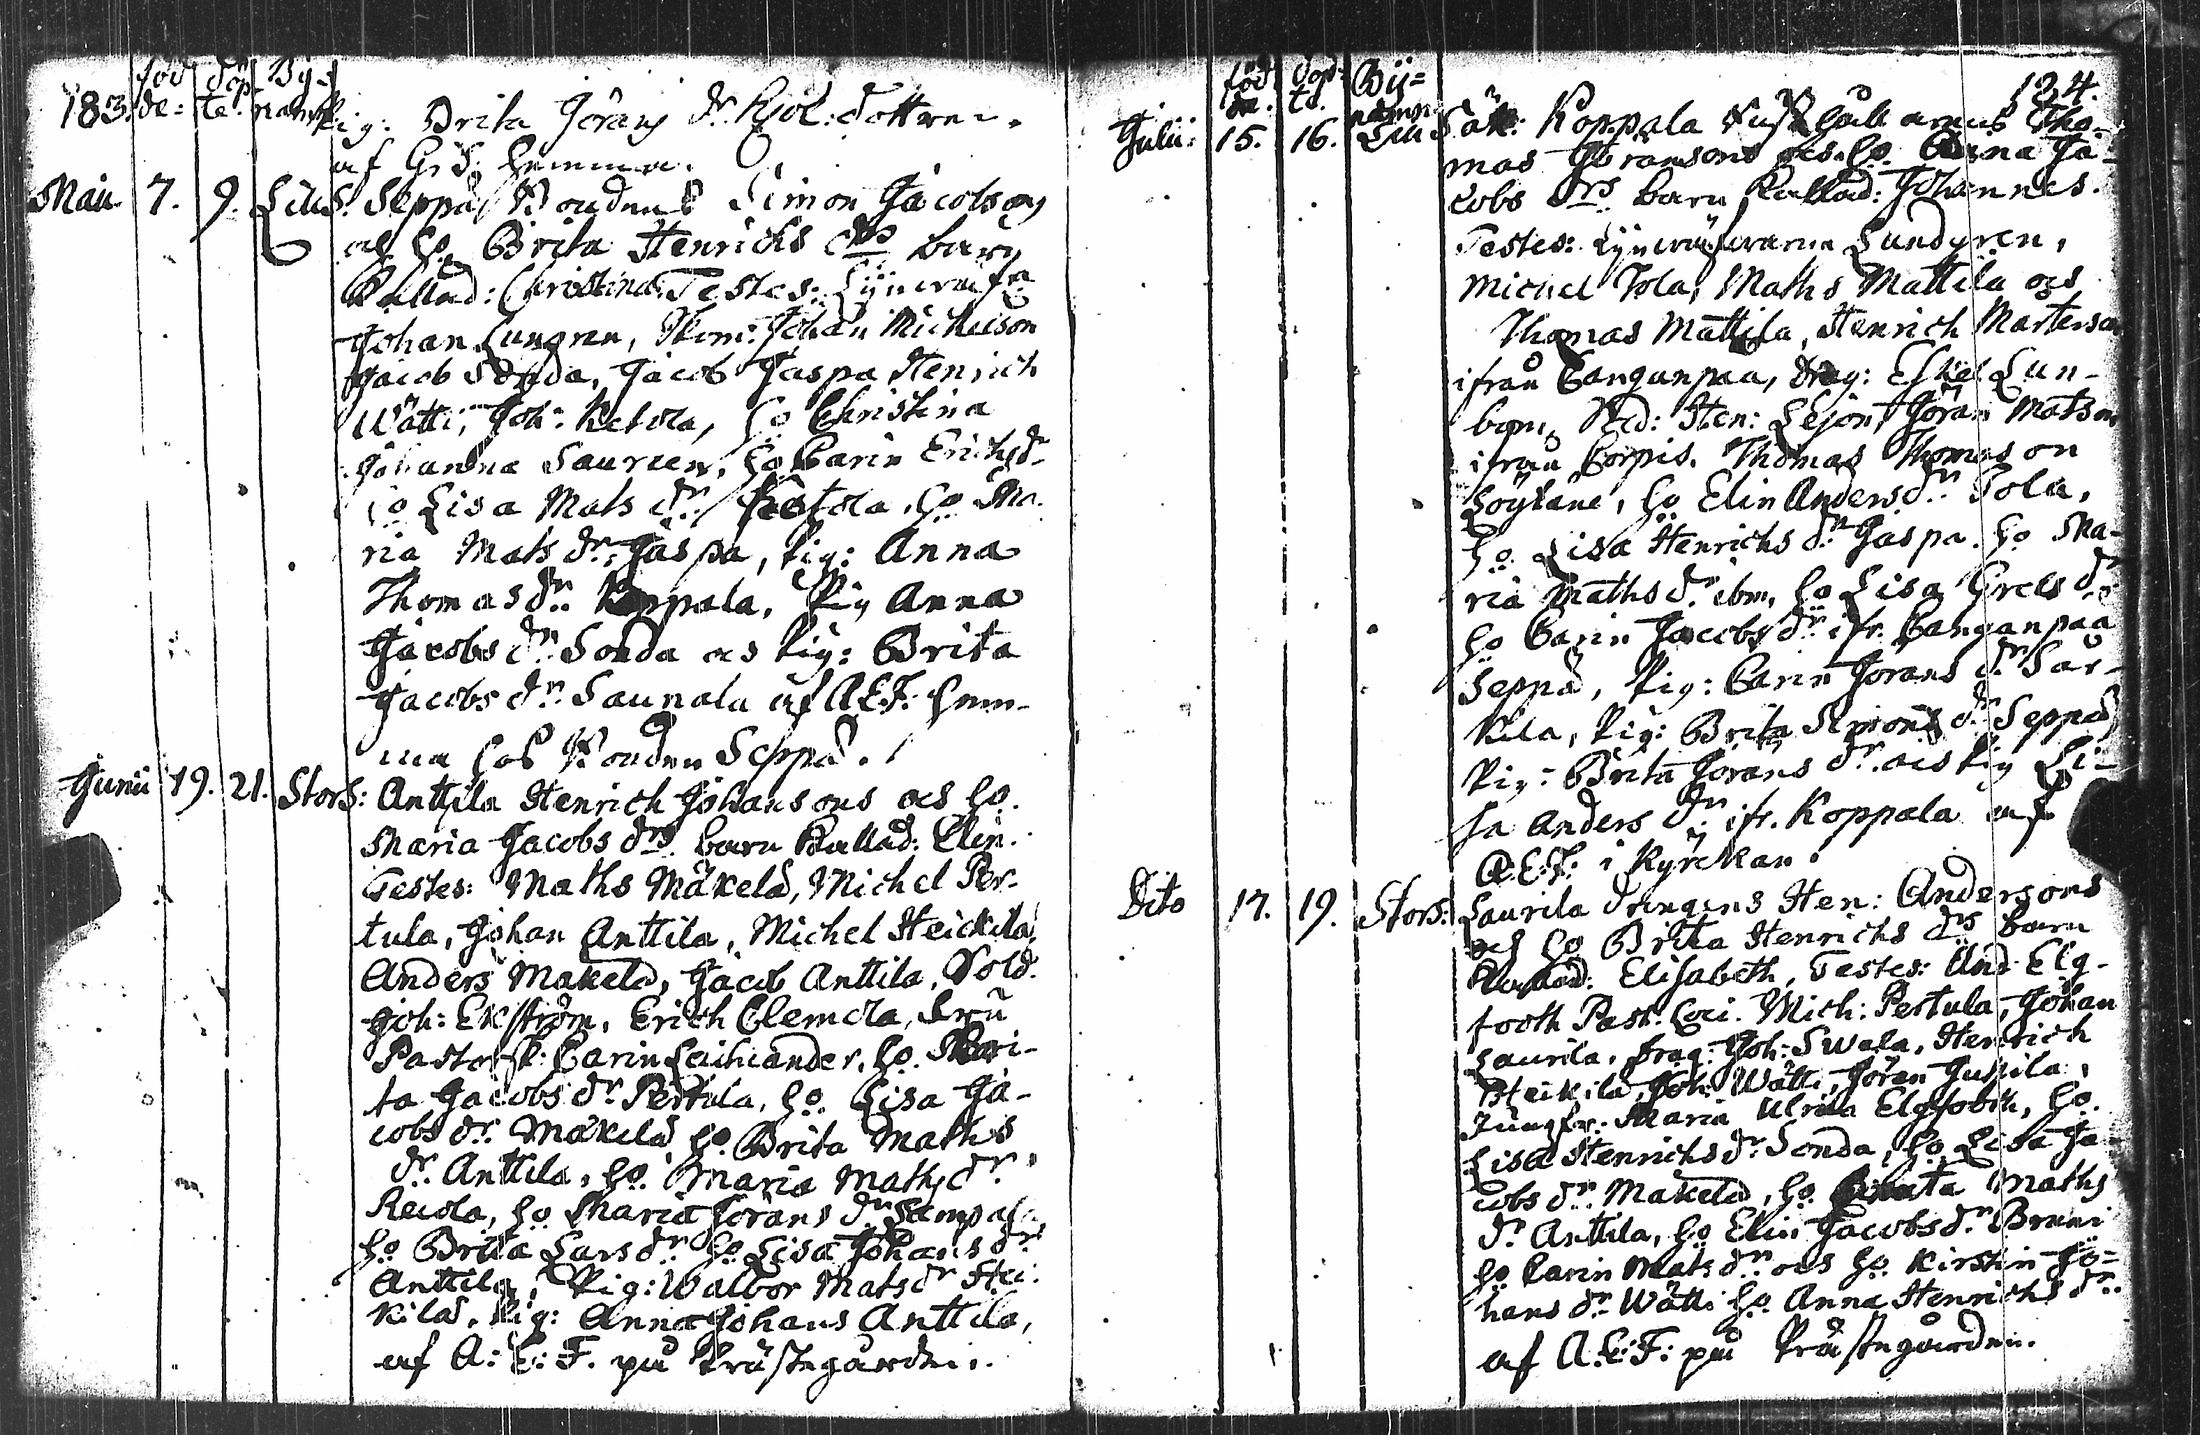 183. föd de: döp te. Bÿ= namn
Pig: Brita Jörans dr Kjöl: dottren.
af G: S: hemma.
Maii 7. 9. Lill S. Seppä Bondens Simon Jacobsons
ock ho Brita Henrichs drs barn
Kallad: Christina. Testes:
Johan Lungren, Johan Michelson
Jacob Sonda, Jacob Jaspa Henrich
Wätti, Joh: Ketola, ho Christina
Johanna Saurien, ho Carin Erichsdr
ho Lisa Mats dr Ketola, ho Ma-
ria Mats dr Jaspa, Pig: Anna
Thomas dr Koppala, Pig Anna
Jacobs dr Sonda ock Pig: Brita
Jacobs dr Saunala af A.E.F. hem-
ma hos Bonden Seppä.
Junii 19. 21. Stors: Anttila Henrich Johansons ock ho.
Maria Jacobs drs barn Kallad: Elin.
Testes: Maths Mäkelä, Michel Per-
tula, Johan Anttila, Michel Heickilä,
Anders Makelä, Jacob Anttila, Sold.
Joh: Ekström, Erich Clemola, fru
Pastorsk: Carin ho. Mari-
ta Jacobs dr Pertula, ho. Lisa Ja-
cobs dr. Mäkelä ho. Brita Maths
dr. Anttila, ho. Maria Maths dr.
Reiola, ho Maria Jörans dr Sampala,
ho Brita Lars dr ho Lisa Johans dr
Anttila, Pig: Walbor Mats dr Hei-
kilä, Pig: Anna Johans Anttila,
af A: E: F. på Prästegården.
föd de. döp te. Bÿ= namn 124.
Julii: 15. 16. Lill Sätt: Koppala Rusthållarens Tho-
mas Jöransons ock ho Anna Ja-
cobs drs barn Kallad: Johannes.
Testes: Lundgren,
Michel Tola, Maths Mattila ock
Thomas Mattila, Henrich Mårtensson
ifrån Canganpaa, Drag: Eskel Lun-
bom, Sold: Hen: Lejon, Jöran Matson
ifrån Corpis. Thomas Thomason
Löytäne, ho Elin Anders dr Tola,
ho Lisa Henrichs dr Jaspa. ho Ma-
ria Maths dr ibm, ho Lisa Grels dr
ho Carin Jacobs dr ifr. Canganpaa
Seppä, Pig: Carin Jorans dr Sar-
kila, Pig: Brita Simons dr Seppä,
Pig: Brita Jörans dr. ock Pig Li-
sa Anders dr ifr. Koppala af
A.E.F: i Kyrckan.
Dito 17. 19. Stors: Laurila drengens Hen: Andersons
och ho Brita Henrichs drs barn
Kallad: Elisabeth, Testes: And: Elg-
footh Past. Loci. Mich: Pertula, Johan
Laurila, Drag: Joh: Swala, Henrich
Heikila, Joh: Wätti, Jören Jussila,
Jungfr: Maria Ulrica Elgfooth, ho.
Lisa Henrichs dr Sonda, ho. Lisa Ja-
cobs dr Makelä, ho Brita Maths
dr Anttila, ho Elin Jacobs dr Bruni
ho Carin Mats dr ock ho. Kirstin Jo=
hans dr Wätti ho Anna Henrichs dr.
af A.E.F: på Prästegården.